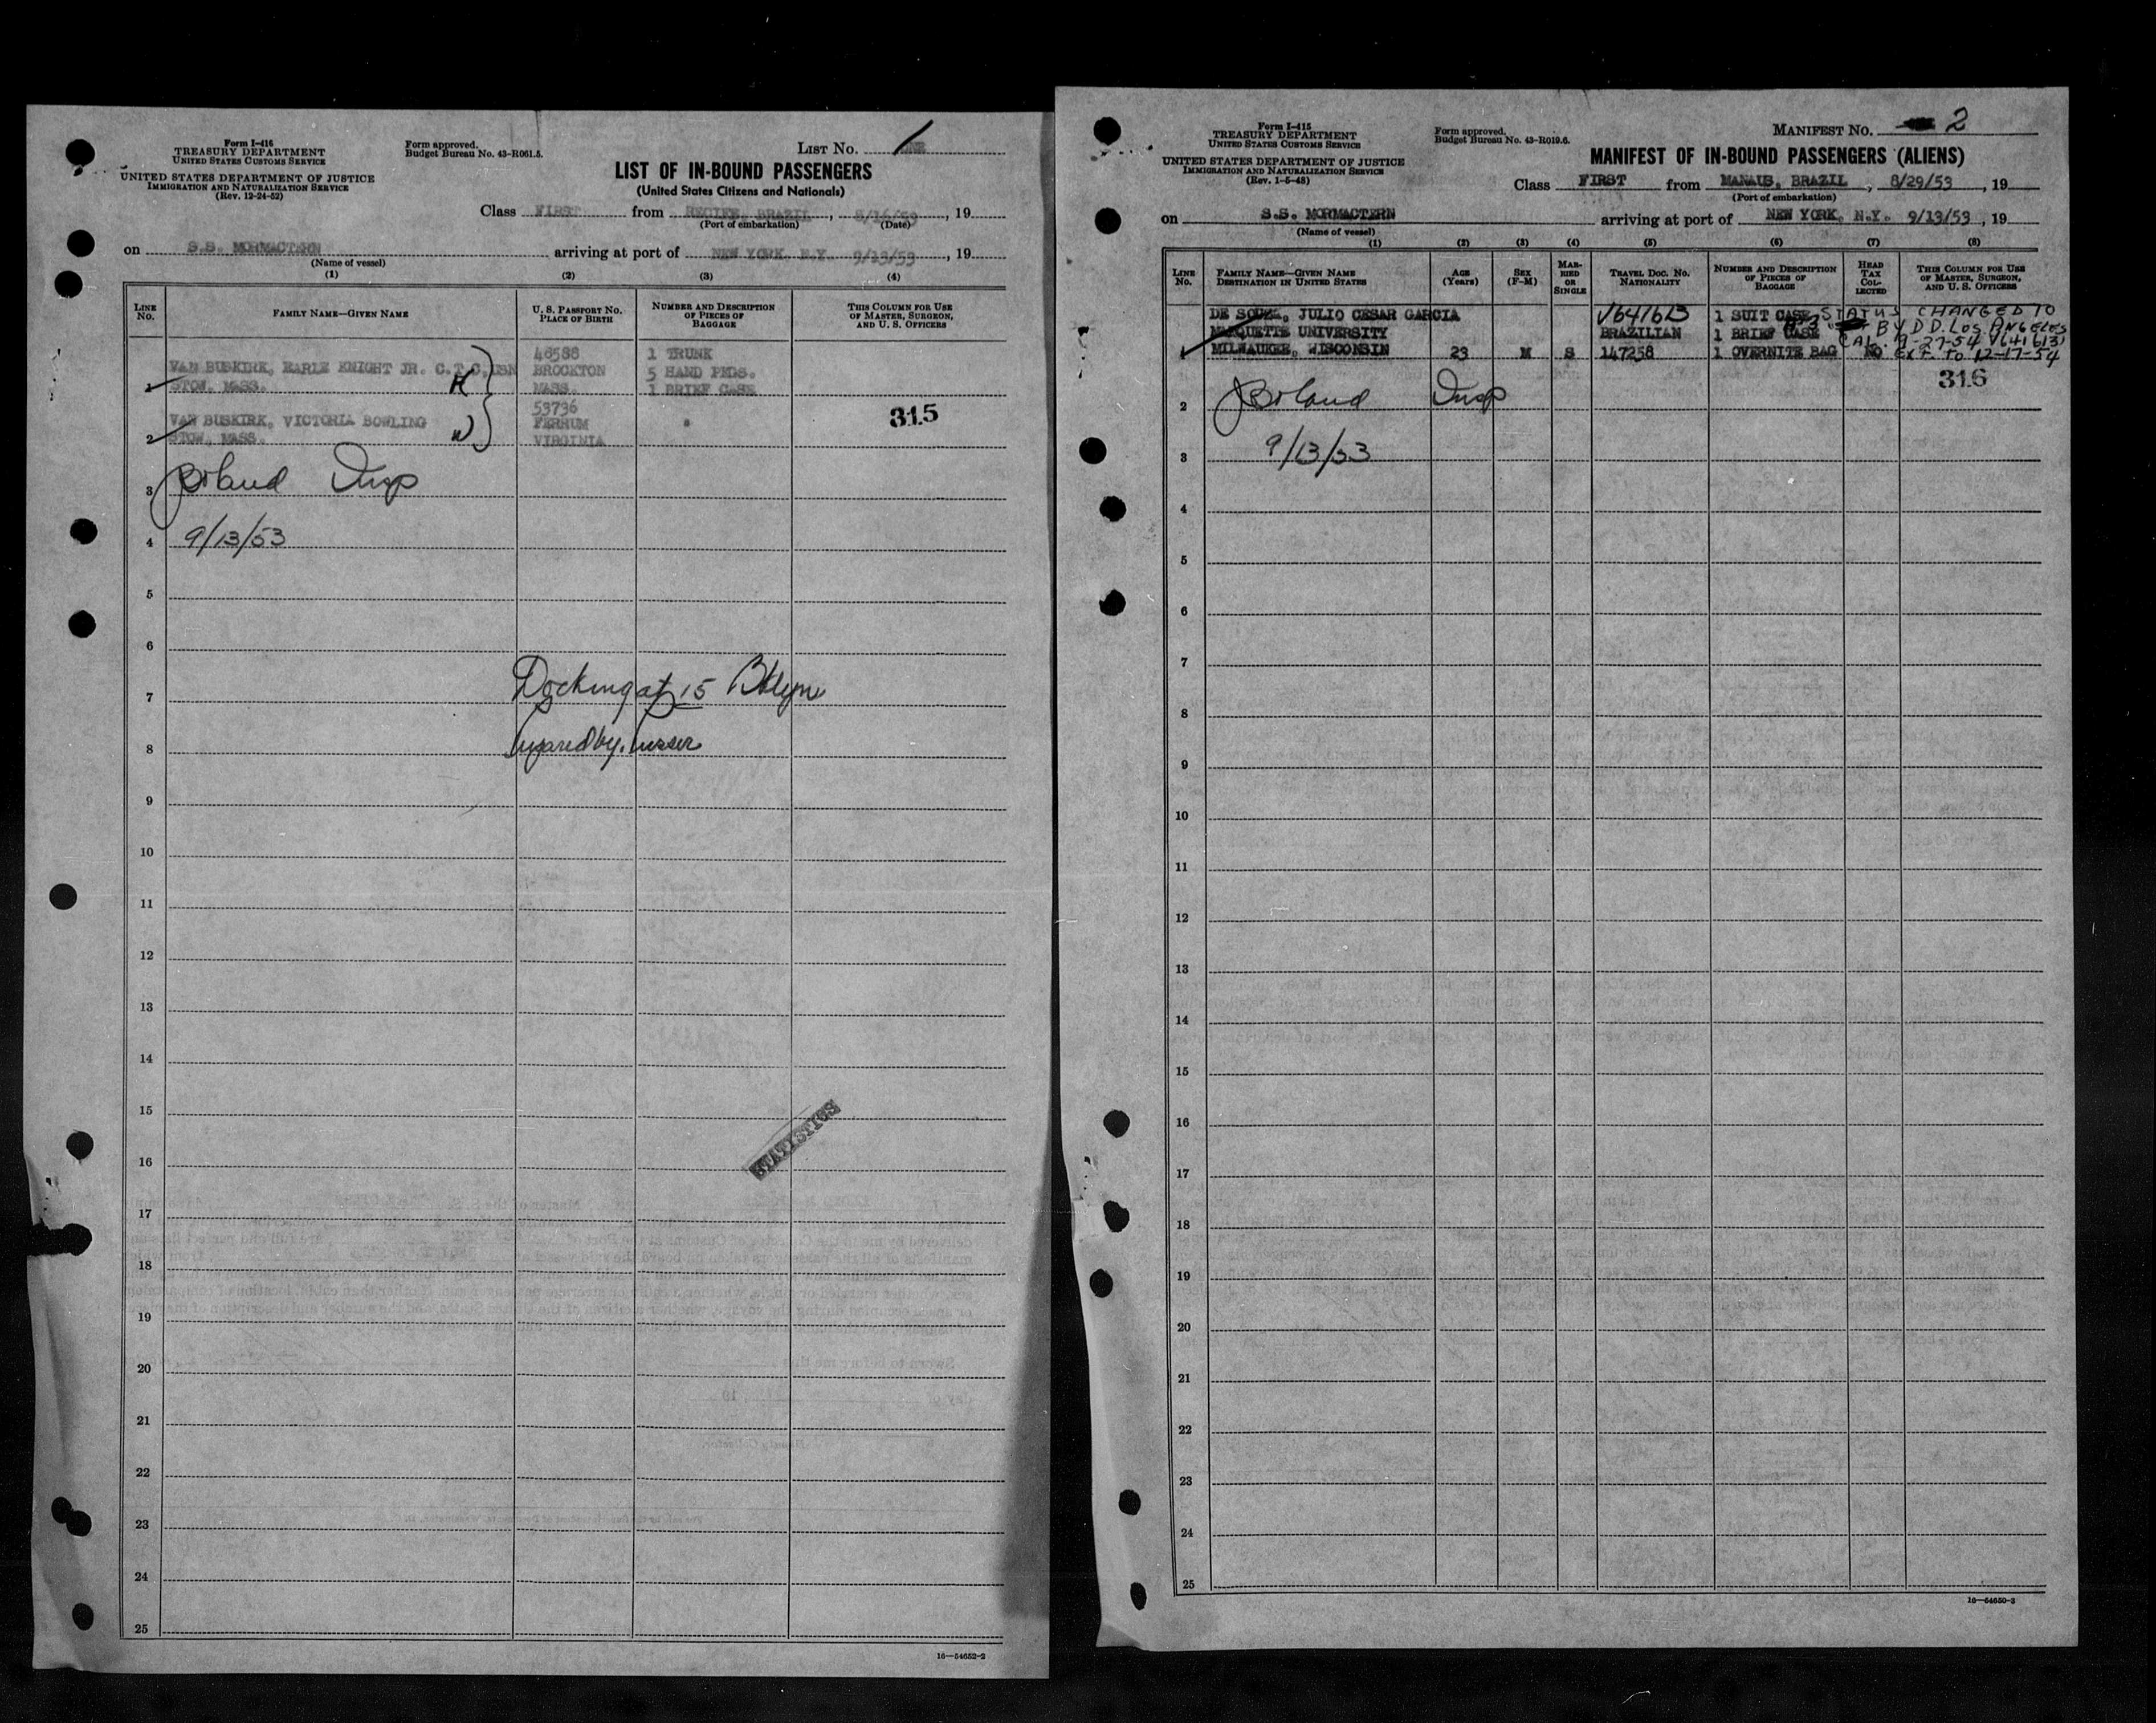 Form I-416
TREASURY DEPARTMENT
UNITED STATES CUSTOMS SERVICE
UNITED STATES DEPARTMENT OF JUSTICE
IMMIGRATION AND NATURALIZATION SERVICE
(Rev. 12-24-52)
Form approved.
Budget Bureau No. 43-R061.5.
LIST No. 1
LIST OF IN-BOUND PASSENGERS
(United States Citizens and Nationals)
Class FIRST from RECIFE, BRAZIL, 8/16/53, 19
(Port of embarkation) (Date)
on S.S. MORMACTERN arriving at port of NEW YORK, N.Y. 9/13/53, 19
(Name of vessel)
(1) (2) (3) (4)
LINE No. FAMILY NAME—GIVEN NAME U. S. PASSPORT No. PLACE OF BIRTH NUMBER AND DESCRIPTION OF PIECES OF BAGGAGE THIS COLUMN FOR USE OF MASTER, SURGEON, AND U. S. OFFICERS
46588 1 TRUNK
VAN BUSKIRK, EARLE KNIGHT JR. C.T.C. USN BROCKTON 5 HAND PKGS.
1 STOW, MASS. H MASS. 1 BRIEF CASE
53736
VAN BUSKIRK, VICTORIA BOWLING FERRUM 315
2 STOW, MASS. W VIRGINIA
3 Boland Insp
4 9/13/53
5
6
7 Docking at 15 Bklyn
8
9
10
11
12
13
14
15
STATISTICS
16
17
18
19
20
21
22
23
24
25
16—54652-2
Form I-415
TREASURY DEPARTMENT
UNITED STATES CUSTOMS SERVICE
UNITED STATES DEPARTMENT OF JUSTICE
IMMIGRATION AND NATURALIZATION SERVICE
(Rev. 1-5-48)
Form approved.
Budget Bureau No. 43-R019.6.
MANIFEST No. 2
MANIFEST OF IN-BOUND PASSENGERS (ALIENS)
Class FIRST from MANAUS, BRAZIL, 8/29/53, 19
(Port of embarkation)
on S.S. MORMACTERN arriving at port of NEW YORK, N.Y. 9/13/53, 19
(Name of vessel)
(1) (2) (3) (4) (5) (6) (7) (8)
LINE No. FAMILY NAME—GIVEN NAME DESTINATION IN UNITED STATES AGE (Years) SEX (F-M) MARRIED OR SINGLE TRAVEL DOC. No. NATIONALITY NUMBER AND DESCRIPTION OF PIECES OF BAGGAGE HEAD TAX COLLECTED THIS COLUMN FOR USE OF MASTER, SURGEON, AND U. S. OFFICERS
DE SOUZA, JULIO CESAR GARCIA V641613 1 SUIT CASE STATUS CHANGED TO
MARQUETTE UNIVERSITY BRAZILIAN 1 BRIEF CASE BY DD. LOS ANGELES
CAL. 9-27-54 V641613
1 MILWAUKEE, WISCONSIN 23 M S 147258 1 OVERNITE BAG NO EXT. to 12-17-54
316
2 Boland Insp
3 9/13/53
4
5
6
7
8
9
10
11
12
13
14
15
16
17
18
19
20
21
22
23
24
25
16—54650-3